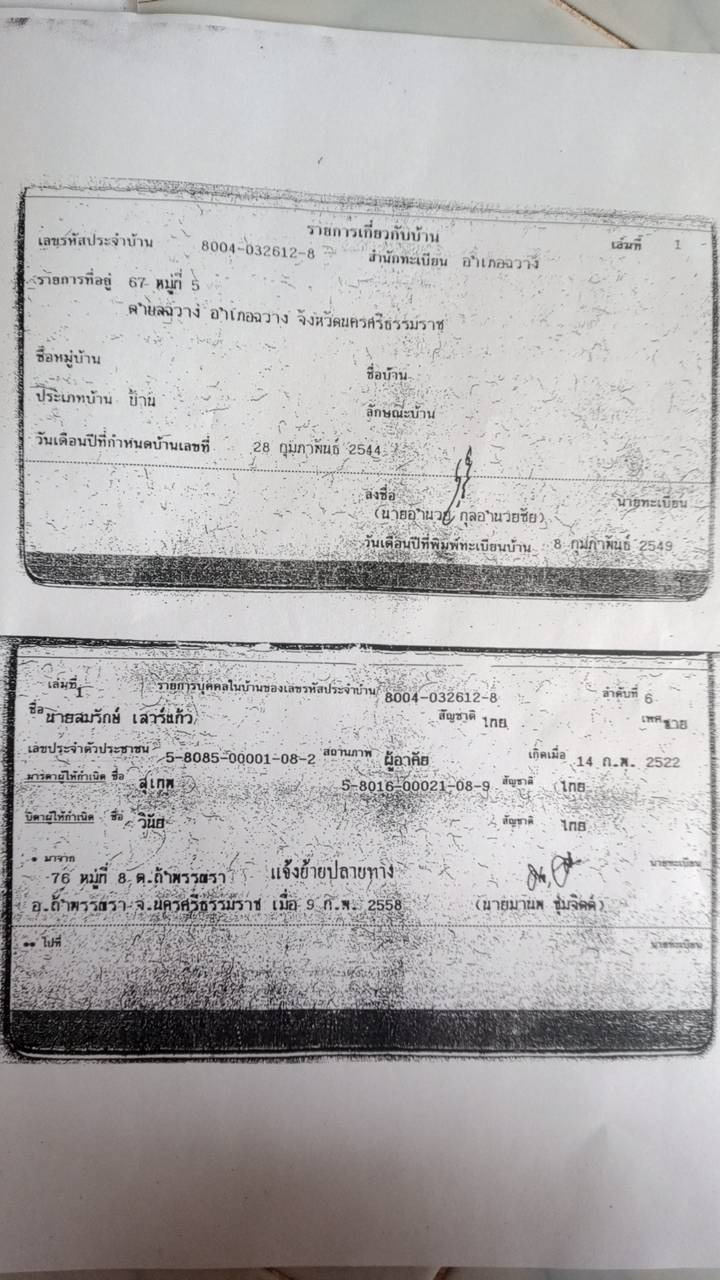 รายการเกี่ยวกับบ้าน เล่มที่ 1
เลขรหัสประจำบ้าน 8004-032612-8 สำนักทะเบียน อำเภอฉวาง
รายการที่อยู่ 67 หมู่ที่ 5
ตำบลฉวาง อำเภอฉวาง จังหวัดนครศรีธรรมราช
ชื่อหมู่บ้าน ชื่อบ้าน
ประเภทบ้าน บ้าน ลักษณะบ้าน
วันเดือนปีที่กำหนดบ้านเลขที่ 28 กุมภาพันธ์ 2544
ลงชื่อ นายทะเบียน
(นายอำนวย กุลอำนวยชัย)
วันเดือนปีที่พิมพ์ทะเบียนบ้าน 8 กุมภาพันธ์ 2549
เล่มที่ 1 รายการบุคคลในบ้านของเลขรหัสประจำบ้าน 8004-032612-8 ลำดับที่ 6
ชื่อ นายสมรักษ์ เสาร์แก้ว สัญชาติ ไทย เพศ ชาย
เลขประจำตัวประชาชน 5-8085-00001-08-2 สถานภาพ ผู้อาศัย เกิดเมื่อ 14 ก.พ. 2522
มารดาผู้ให้กำเนิด ชื่อ สุเทพ 5-8016-00021-08-9 สัญชาติ ไทย
บิดาผู้ให้กำเนิด ชื่อ วินัย สัญชาติ ไทย
* มาจาก นายทะเบียน
76 หมู่ที่ 8 ต.ถ้ำพรรณรา แจ้งย้ายปลายทาง
อ.ถ้ำพรรณรา จ.นครศรีธรรมราช เมื่อ 9 ก.พ. 2558 (นายมานพ ชุมจิตต์)
** ไปที่ นายทะเบียน